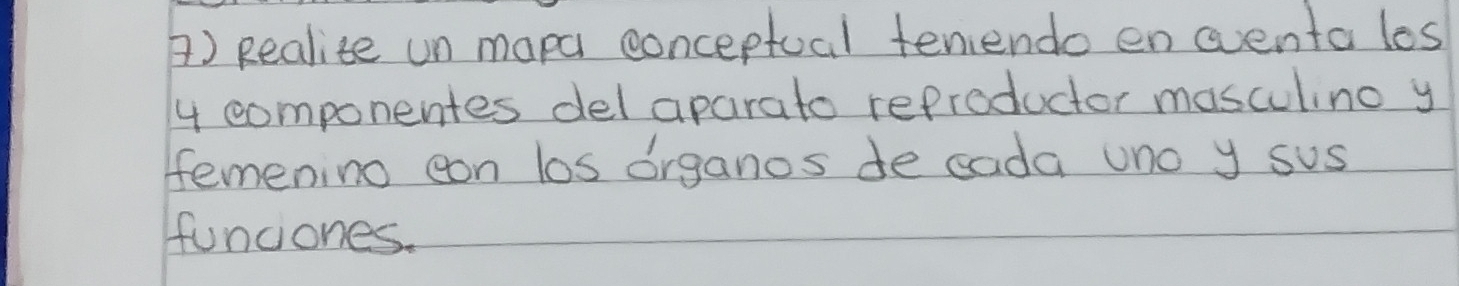 7) Realize un mapa conceptual teniendo en cuenta los
4 componentes del aparato reproductor masculino y
femenino con los órganos de cada uno y sus
funciones.